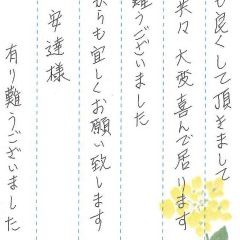 も良くして頂きまして
共々 大変喜んで居ります
難うございました
からも宜しくお願い致します
安達様
有り難うございました